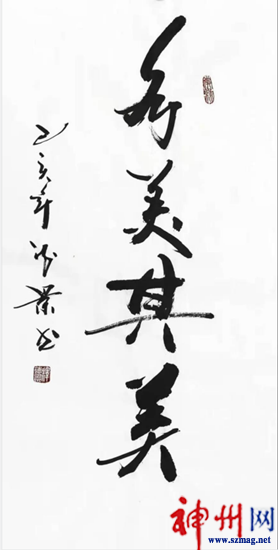 各美其美
己亥年
书
神州网
www.szmag.net